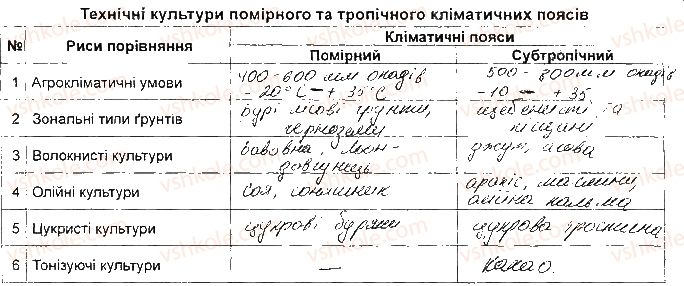 Технічні культури помірного та тропічного кліматичних поясів
№ Риси порівняння Кліматичні пояси
Помірний Субтропічний
1 Агрокліматичні умови 400-600 мм опадів 500-800 мм опадів
-20°С — +35°С -10 — +35
2 Зональні типи ґрунтів бурі лісові ґрунти, щебенисті та
чорноземи піщані
3 Волокнисті культури бавовна, льон- джут,
довгунець
4 Олійні культури соя, соняшник арахіс, маслини,
олійна пальма
5 Цукристі культури цукрові буряки цукрова тростина
6 Тонізуючі культури — какао.
vshkole.com